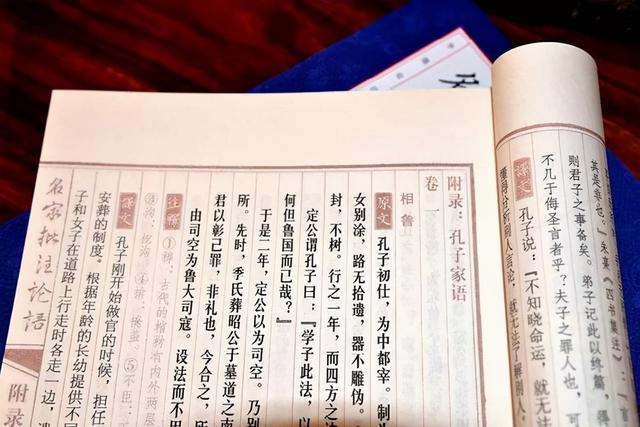 其是非也。”朱熹《四书集注》：“言
则君子之事备矣。弟子记此以终篇，得
不几于侮圣言者乎？夫子之罪人也，可
译文 孔子说：『不知晓命运，就无法
懂得分析别人言论，就无法了解别人。
附录：孔子家语
卷一
相鲁
原文 孔子初仕，为中都宰。制
女别涂，路无拾遗，器不雕伪。
封，不树。行之一年，而四方之
定公谓孔子曰：『学子此法，以
何但鲁国而已哉？』
于是二年，定公以为司空。乃别
所。先时，季氏葬昭公于墓道之南
君以彰己罪，非礼也，今合之，所
由司空为鲁大司寇。设法而不用
注释 ①椁：古代的棺材有内外两层
③沟：挖沟。④揜：掩盖。⑤不臣：
译文 孔子刚开始做官的时候，担任
安葬的制度。根据年龄的长幼提供不同
子和女子在道路上行走时各走一边，遗
名家批注论语
附录